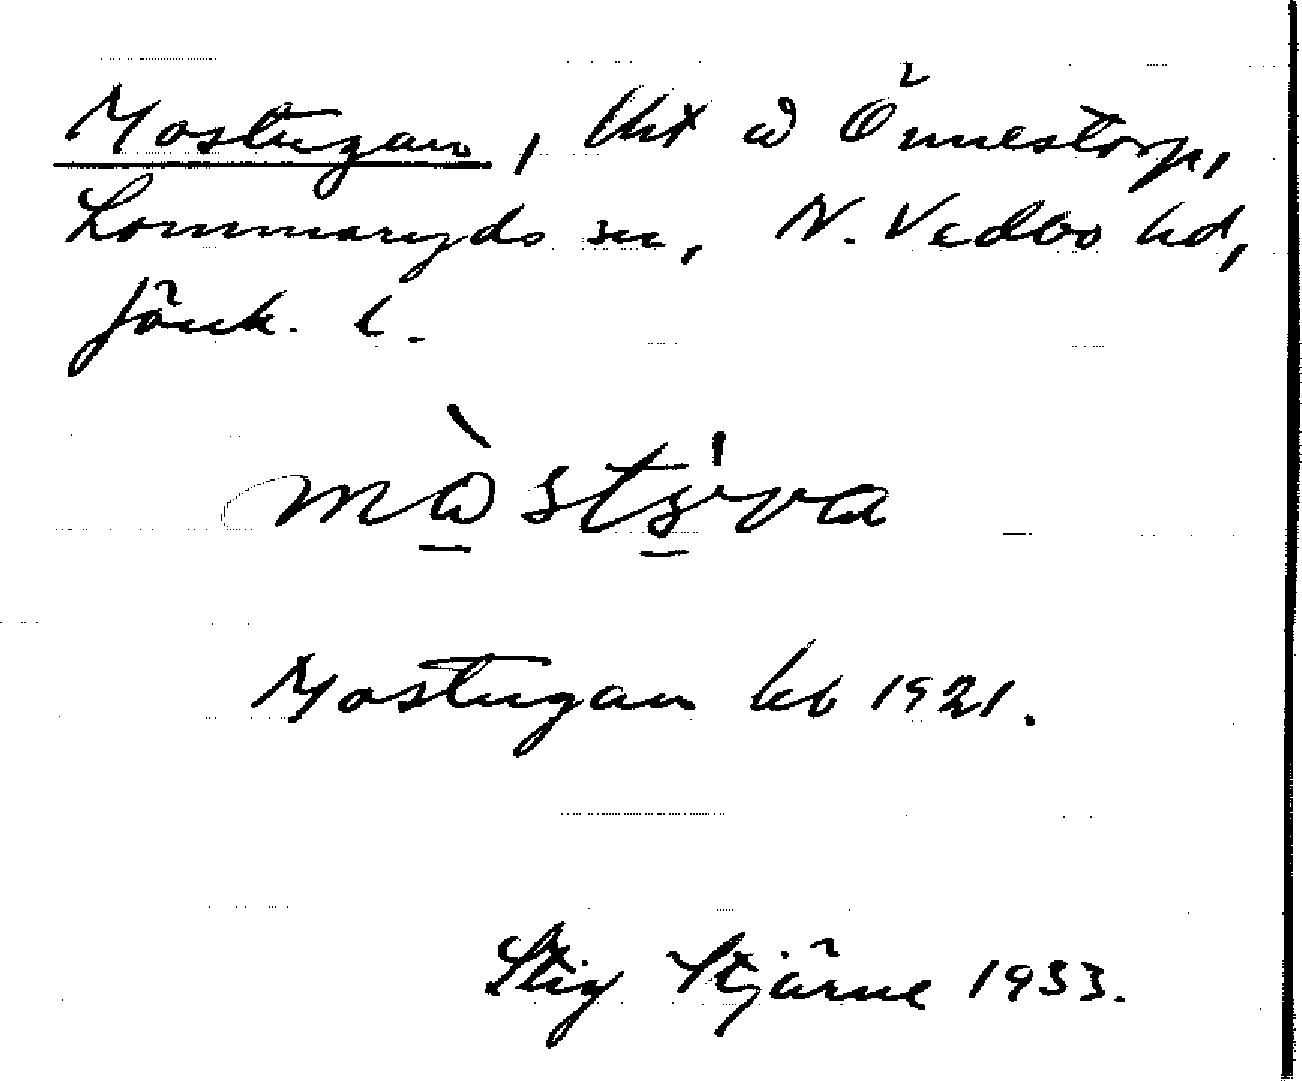 Mostugan, lht å Önnestorp,
Lommaryds sn, N. Vedbo hd,
Jönk. l.
Mostugan kb 1921.
Stig Stjärne 1933.